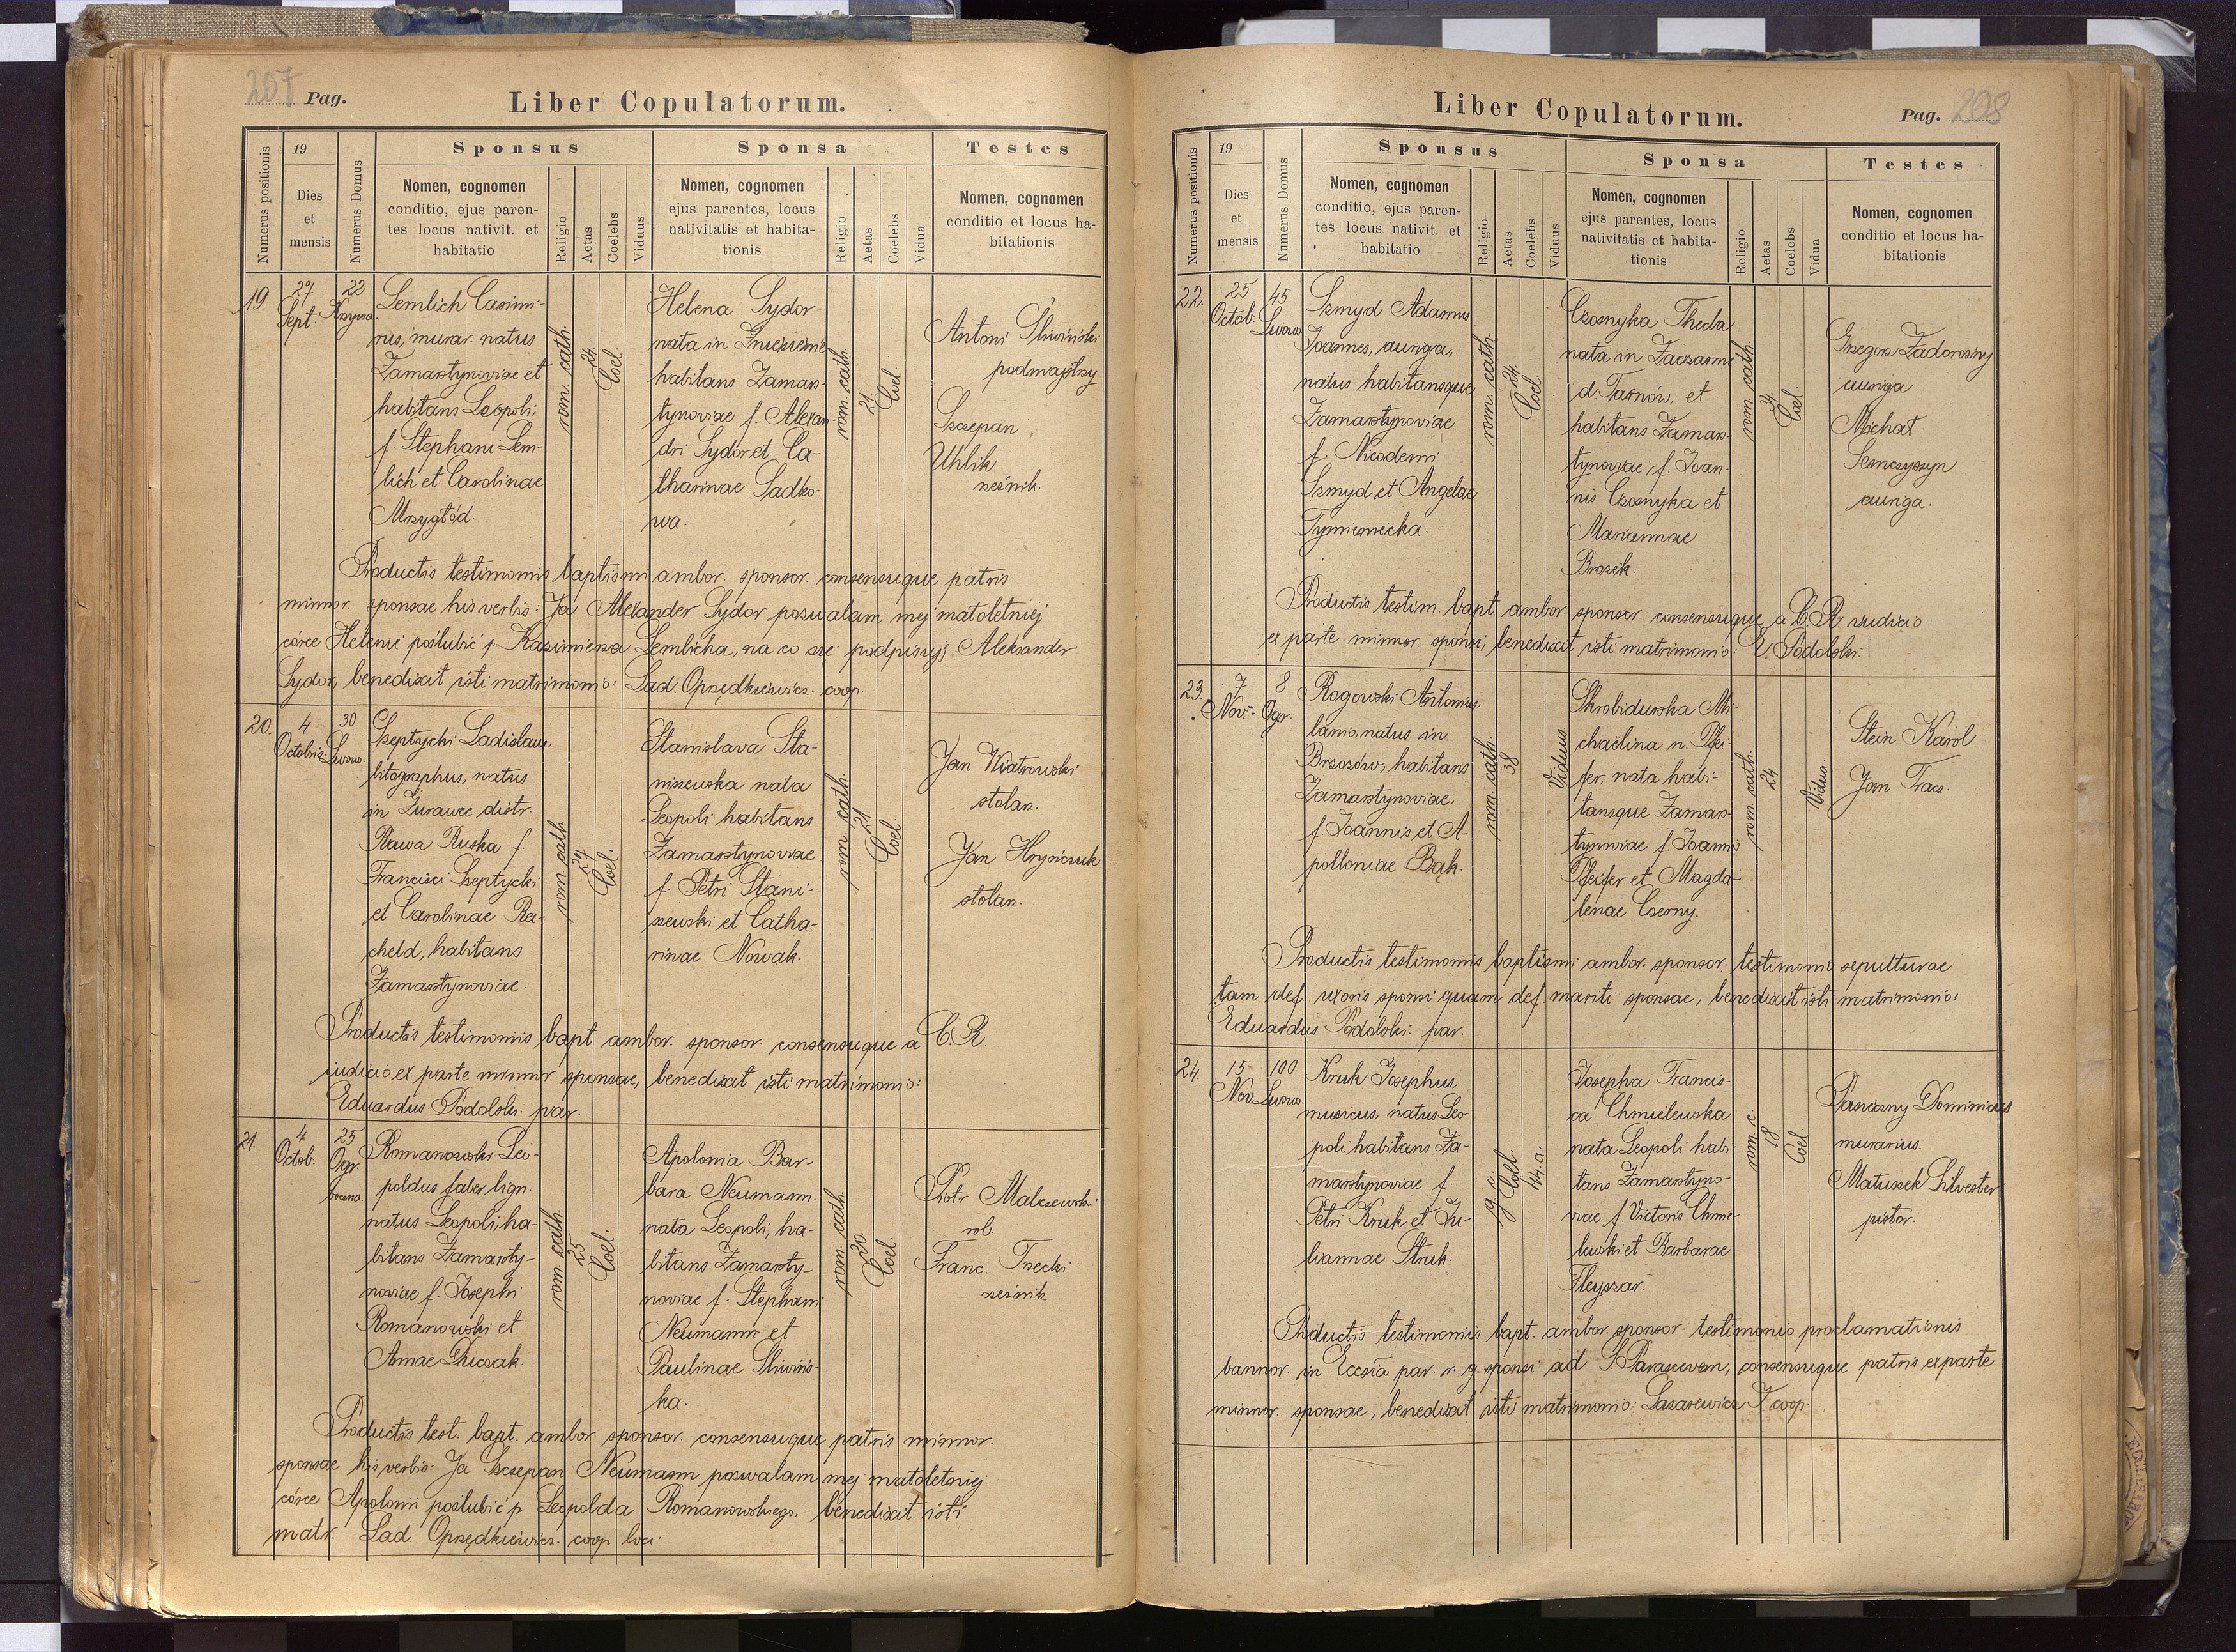 207 Pag.
Liber Copulatorum.
Numerus positionis
19
Dies
et
mensis
Numerus Domus
Sponsus
Nomen, cognomen
conditio, ejus paren-
tes locus nativit. et
habitatio
Religio
Aetas
Coelebs
Viduus
Sponsa
Nomen, cognomen
ejus parentes, locus
nativitatis et habita-
tionis
Religio
Aetas
Coelebs
Vidua
Testes
Nomen, cognomen
conditio et locus ha-
bitationis
19.
27
Sept.
22
Krzywa
Lemlich Casimi-
rus, murar. natus
Zamarstynoviae et
habitans Leopoli,
f. Stephani Lem-
lich et Carolinae
Mrzygłód.
rom. cath.
24.
Coel.
Helena Sydor
nata in Zniesienie
habitans Zamar-
tynoviae f. Alexan
dri Sydor et Ca-
tharinae Sadko-
wa.
rom. cath.
21
Coel.
Antoni Śliwiński
podmajstrzy
Szczepan
Uhlik
rzeźnik.
Productis testimoniis baptismi ambor. sponsor. consensuque patris
minnor. sponsae his verbis: Ja Alexander Sydor pozwalam mej małoletniej
córce Helenie poślubić p. Kazimierza Lemlicha, na co się podpisuję Aleksander
Sydor, benedixit isti matrimonio: Lad. Oprzędkiewicz. coop.
20.
4
Octobris
30
Lwows
Szeptycki Ladislaus,
litographus, natus
in Żurawce distr.
Rawa Ruska f.
Francisci Szeptycki
et Carolinae Rei-
cheld, habitans
Zamarstynoviae.
rom. cath.
24
Coel.
Stanislava Sta-
niszewska nata
Leopoli habitans
Zamarstynoviae
f. Petri Stani-
szewski et Catha-
rinae Nowak.
rom. cath.
21
Coel.
Jan Wiatrowski
stolarz.
Jan Hryńczuk
stolarz.
Productis testimoniis bapt. ambor. sponsor. consensuque a C. R.
iudicio ex parte minnor. sponsae, benedixit isti matrimonio:
Eduardus Podolski par.
21.
4
Octob.
25
Ogr.
boczna
Romanowski Leo-
poldus faber lign.
natus Leopoli, ha-
bitans Zamarsty-
noviae f. Josephi
Romanowski et
Annae Duczak.
rom. cath.
25
Coel.
Apolonia Bar-
bara Neumann.
nata Leopoli, ha-
bitans Zamarsty-
noviae f. Stephani
Neumann et
Paulinae Śliwiń-
ka.
rom. cath.
20.
Coel.
Piotr Malczewski
rob.
Franc. Trzecki
rzeźnik
Productis test. bapt. ambor. sponsor. consensuque patris minnor.
sponsae his verbis: Ja Szczepan Neumann pozwalam mej małoletniej
córce Apolonii poślubić p. Leopolda Romanowskiego. benedixit isti
matr. Lad. Oprzędkiewicz. coop. loci.
Liber Copulatorum.
Pag. 208
Numerus positionis
19
Dies
et
mensis
Numerus Domus
Sponsus
Nomen, cognomen
conditio, ejus paren-
tes locus nativit. et
habitatio
Religio
Aetas
Coelebs
Viduus
Sponsa
Nomen, cognomen
ejus parentes, locus
nativitatis et habita-
tionis
Religio
Aetas
Coelebs
Vidua
Testes
Nomen, cognomen
conditio et locus ha-
bitationis
22.
25
Octob.
45
Lwows
Szmyd Adamus
Joannes, auriga,
natus habitansque
Zamarstynoviae
f. Nicodemi
Szmyd et Angelae
Tymieniecka.
rom. cath.
24.
Coel.
Czosnyka Thecla
nata in Zaczarnie
d. Tarnów, et
habitans Zamars-
tynoviae, f. Joan-
nis Czosnyka et
Mariannae
Brozek.
rom. cath.
34.
Coel.
Grzegorz Zadorożny
auriga
Michał
Semczyszyn
auriga.
Productis testim. bapt. ambor sponsor. consensuque a C. R. iudicio
ex parte minnor. sponsi, benedixit isti matrimonio: E. Podolski.
23.
7
Nov.
8
Ogr.
Rogowski Antonius,
lanio, natus in
Brzozów, habitans
Zamarstynoviae.
f. Joannis et A-
polloniae Bąk.
rom. cath.
38
Viduus
Skrobidurska Mi-
chaëlina n. Pfei-
fer, nata habi-
tansque Zamars-
tynoviae f. Joannis
Pfeifer et Magda-
lenae Czerny.
rom. cath.
24.
Vidua
Stein Karol
Jan Tracz.
Productis testimoniis baptismi ambor. sponsor. testimonio sepulturae
tam def. uxoris sponsi quam def. mariti sponsae, benedixit isti matrimonio:
Eduardus Podolski par.
24.
15
Nov.
100
Lwows.
Kruk Josephus
musicus, natus Leo-
poli habitans Za-
marstynoviae f.
Petri Kruk et Ju-
liannae Struk.
g. c.
Coel.
44. a.
Josepha Francis-
ca Chmielewska
nata Leopoli habi
tans Zamarstyno-
viae f. Victoris Chmie-
lewski et Barbarae
Fleyszar.
rom. c
18.
Coel.
Pasieczny Dominicus
murarius.
Matuszek Silvester
pistor.
Productis testimoniis bapt. ambor. sponsor. testimonio proclamationis
bannor. in Eccsia par. r. g. sponsi ad S. Parascevem, consensuque patris ex parte
minnor. sponsae, benedixit isti matrimonio: Lazarewicz J. coop.